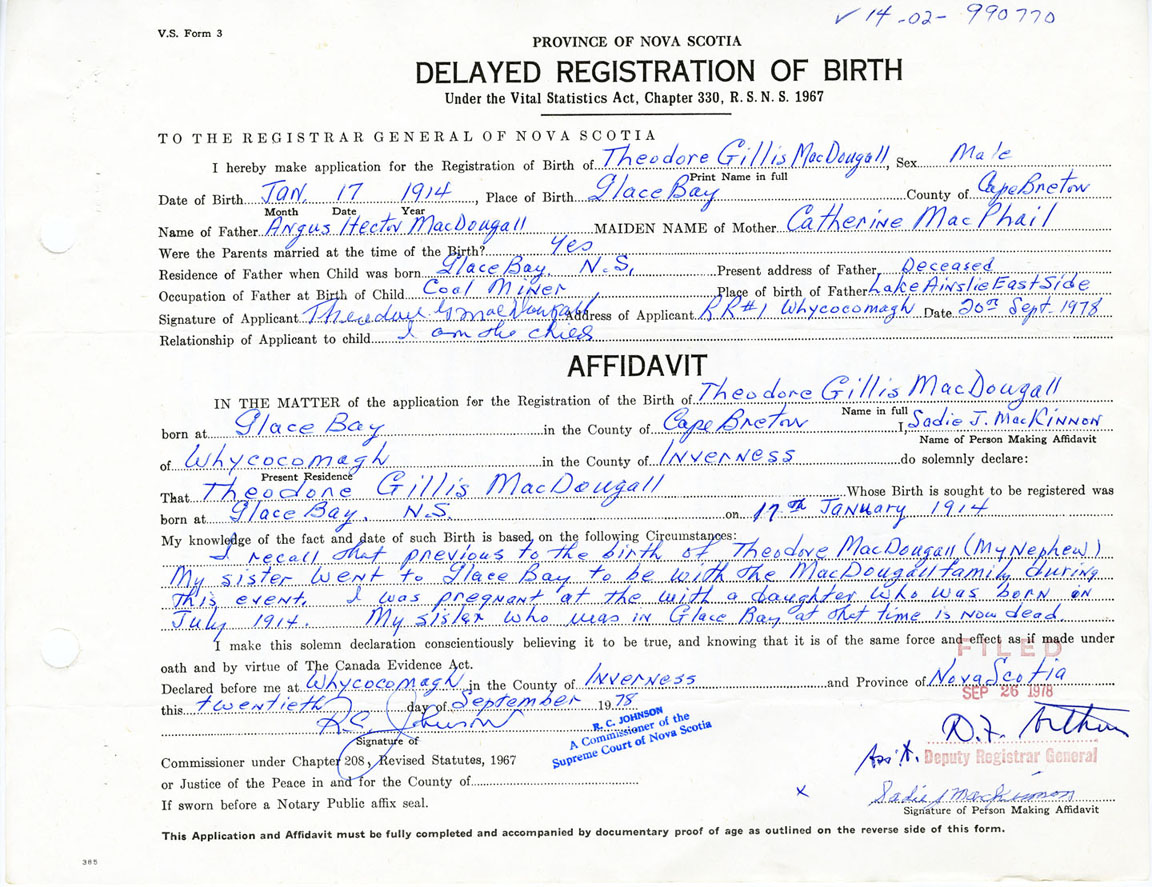 ✓ 14-02- 990770
V.S. Form 3
PROVINCE OF NOVA SCOTIA
DELAYED REGISTRATION OF BIRTH
Under the Vital Statistics Act, Chapter 330, R. S. N. S. 1967
TO THE REGISTRAR GENERAL OF NOVA SCOTIA
I hereby make application for the Registration of Birth of Theodore Gillis MacDougall, Sex Male
Print Name in full
Date of Birth JAN. 17 1914, Place of Birth Glace Bay County of Cape Breton
Month Date Year
Name of Father Angus Hector MacDougall MAIDEN NAME of Mother Catherine MacPhail
Were the Parents married at the time of the Birth? Yes
Residence of Father when Child was born Glace Bay, N.S. Present address of Father Deceased
Occupation of Father at Birth of Child Coal Miner Place of birth of Father Lake Ainslie East Side
Signature of Applicant Theodore G MacDougall Address of Applicant RR#1 Whycocomagh Date 20th Sept. 1978
Relationship of Applicant to child I am the child
AFFIDAVIT
IN THE MATTER of the application for the Registration of the Birth of Theodore Gillis MacDougall
Name in full
born at Glace Bay in the County of Cape Breton I, Sadie J. MacKinnon
Name of Person Making Affidavit
of Whycocomagh in the County of Inverness do solemnly declare:
Present Residence
That Theodore Gillis MacDougall Whose Birth is sought to be registered was
born at Glace Bay, N.S. on 17th January 1914
My knowledge of the fact and date of such Birth is based on the following Circumstances:
I recall that previous to the birth of Theodore MacDougall (My Nephew)
My sister went to Glace Bay to be with the MacDougall family during
this event. I was pregnant at the with a daughter who was born on
July 1914. My sister who was in Glace Bay at that time is now dead.
I make this solemn declaration conscientiously believing it to be true, and knowing that it is of the same force and effect as if made under
oath and by virtue of The Canada Evidence Act.
FILED
Declared before me at Whycocomagh in the County of Inverness and Province of Nova Scotia
SEP 26 1978
this twentieth day of September 19 78
R.C. Johnson
Signature of
R. C. JOHNSON
A Commissioner of the
Supreme Court of Nova Scotia
Ass't. Deputy Registrar General
Commissioner under Chapter 208, Revised Statutes, 1967
or Justice of the Peace in and for the County of
x Sadie J MacKinnon
Signature of Person Making Affidavit
If sworn before a Notary Public affix seal.
This Application and Affidavit must be fully completed and accompanied by documentary proof of age as outlined on the reverse side of this form.
385